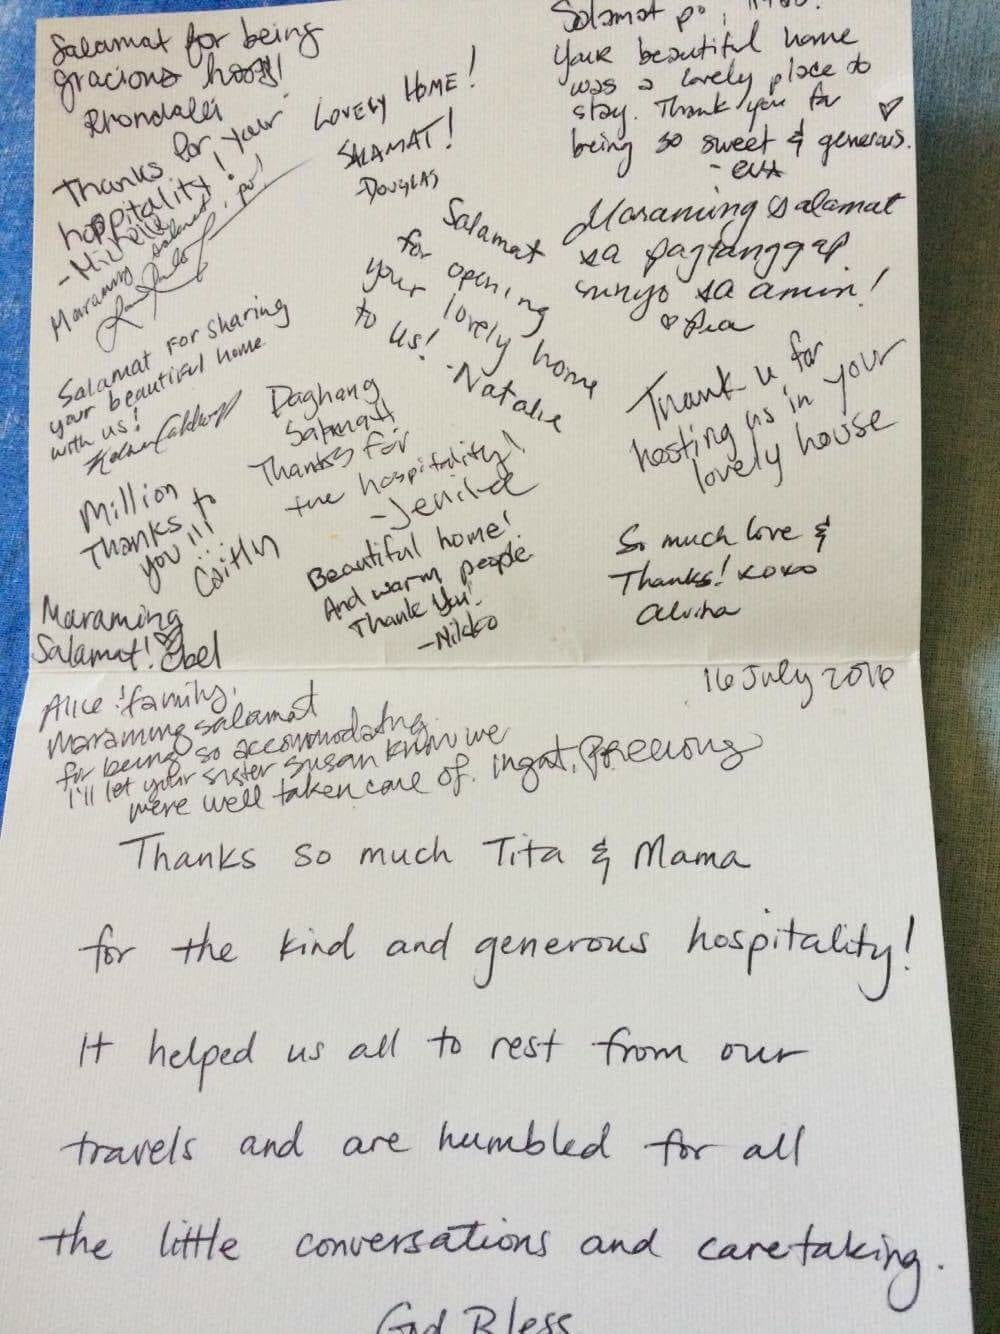 Salamat for being
gracious hosts!
Rhondalei
Thanks for your
hospitality!
-Michelle
Maraming salamat, po!
Salamat for sharing
your beautiful home
with us!
Million
Thanks to
you!!!
Caitlin
Maraming
Salamat! Obel
LOVELY HOME!
SALAMAT!
-DOUGLAS
Salamat
for opening
your lovely home
to us!
-Natalie
Daghang
Salamat
Thanks for
the hospitality!
Beautiful home!
And warm people
Thank You!
-Nikko
Salamat po,
Your beautiful home
was a lovely place to
stay. Thank you for
being so sweet & generous.
- eva
Maraming salamat
sa pagtanggap
sa amin!
Thank u for
hosting us in your
lovely house
So much love &
Thanks! xoxo
alvina
16 July 2016
Alice & family,
Maraming salamat
for being so accommodating.
I'll let your sister Susan know we
were well taken care of. Ingat, Precious
Thanks so much Tita & Mama
for the kind and generous hospitality!
It helped us all to rest from our
travels and are humbled for all
the little conversations and caretaking.
God Bless